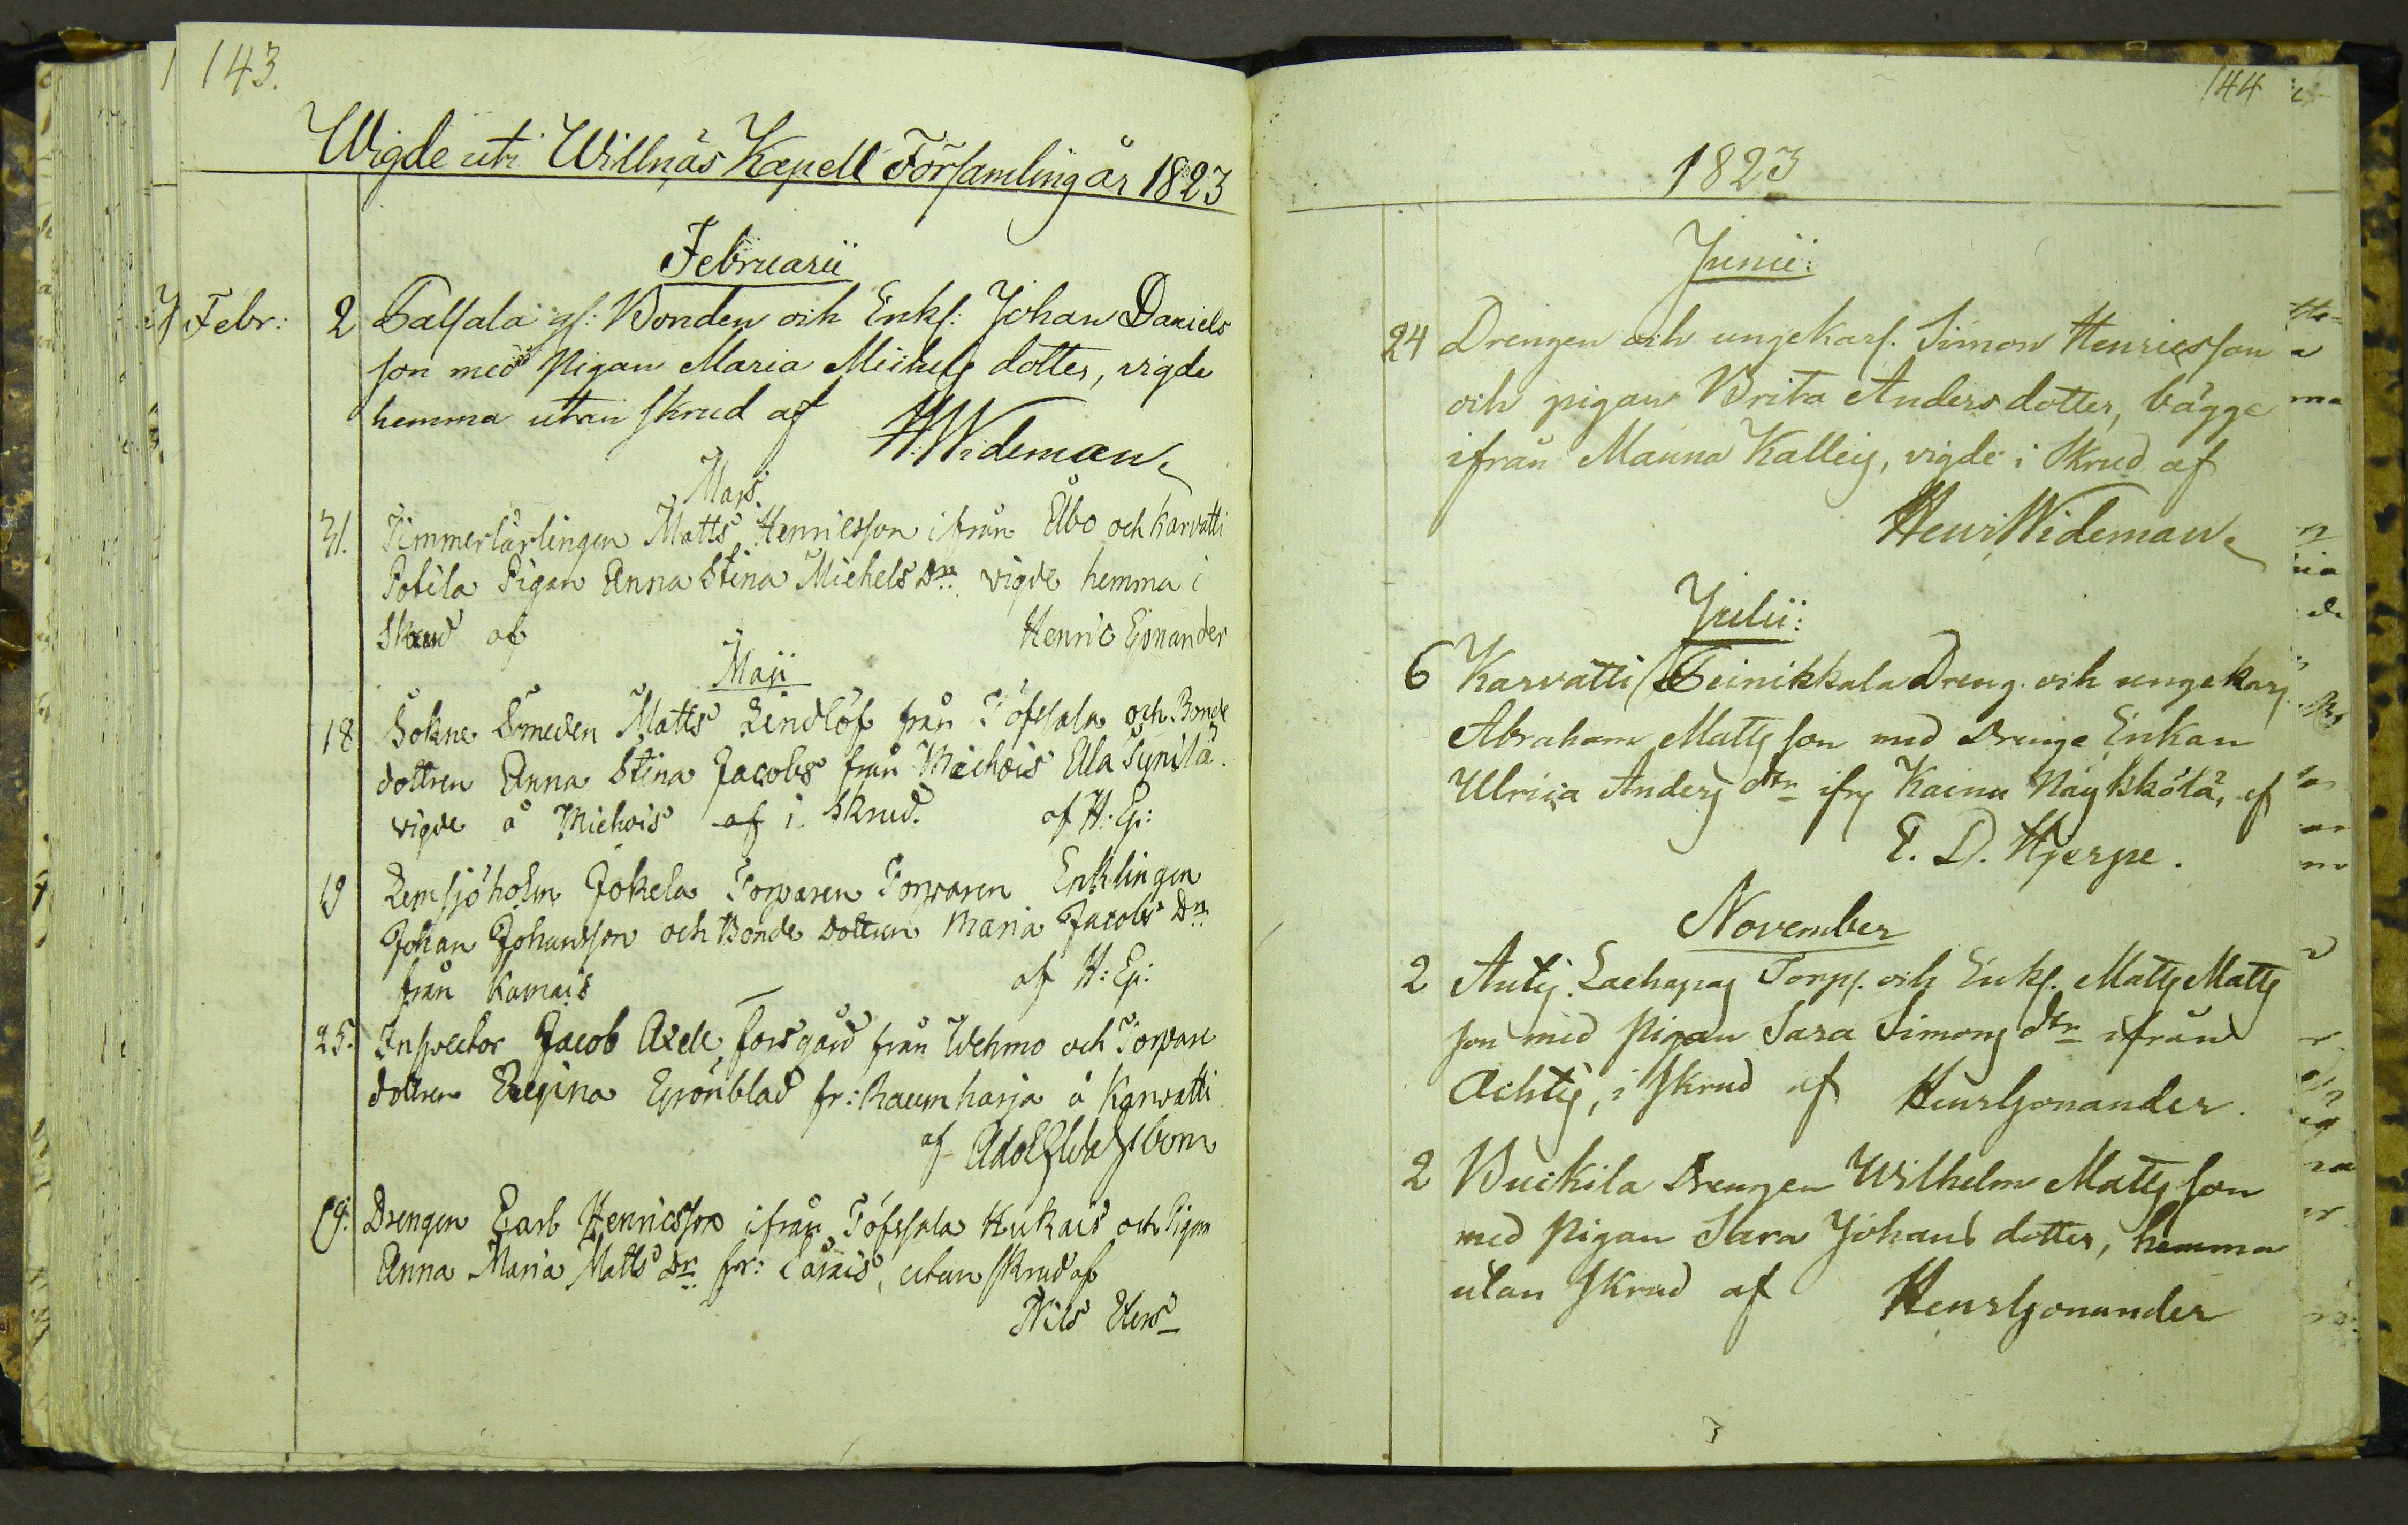 143.
Wigde uti Willnäs Kapell Församling år 1823
Februarii
Febr: 2 Salsala gl: Bonden och Enkl: Johan Daniels
son med Pigan Maria Michels dotter, vigde
hemma utan skrud af H. Wideman
Mars
31. Timmerlärlingen Matts Henricsson ifrån Åbo och Karvatti
Potila Pigan Anna Stina Michels Dr: vigde hemma i
Skrud af Henric Gonander
Maji
18 Sokne Smeden Matts Lindlöf från Töfsala och Bonde
dottren Anna Stina Jacobs från Michois Ella Sunila.
vigde å Michois af i Skrud. af H: G:
19 Lemsjöholm Jokela Torparen Torparen Enklingen
Johan Johansson och Bonde dottren Maria Jacobs Dr:
från Kamais af H: G:
25. Inspector Jacob Axel Forsgård från Wehmo och Torpare
dottren Regina Grönblad fr: Raumharja å Karvatti
af Adolf
19. Drengen Carl Henricsson ifrån Töfsala Hukais och Pigan
Anna Maria Matts dr: fr: Lärais, utan skrud af
Nils
144
1823
Junii:
24 Drengen och ungekarl. Simon Henricsson
och pigan Brita Anders dotter, bägge
ifrån Mauna Kalleis, vigde i Skrud af
Henr: Wideman
Julii:
6 Karvatti Seinikkala Dreng och ungekarl
Abraham Matts son med Drenge Enkan
Ulrica Anders dtr ifr Kainu Näykkölä, af
E. D. Hjerpe.
November
2 Antis. Lachapas Torp. och Enkl. Matts Matts
son med Pigan Sara Simons dtr ifrån
Achtis, i Skrud af Henr Gonander.
2 Buckila Drengen Wilhelm Matts son
med Pigan Sara Johans dotter, hemma
utan Skrud af Henr Gonander